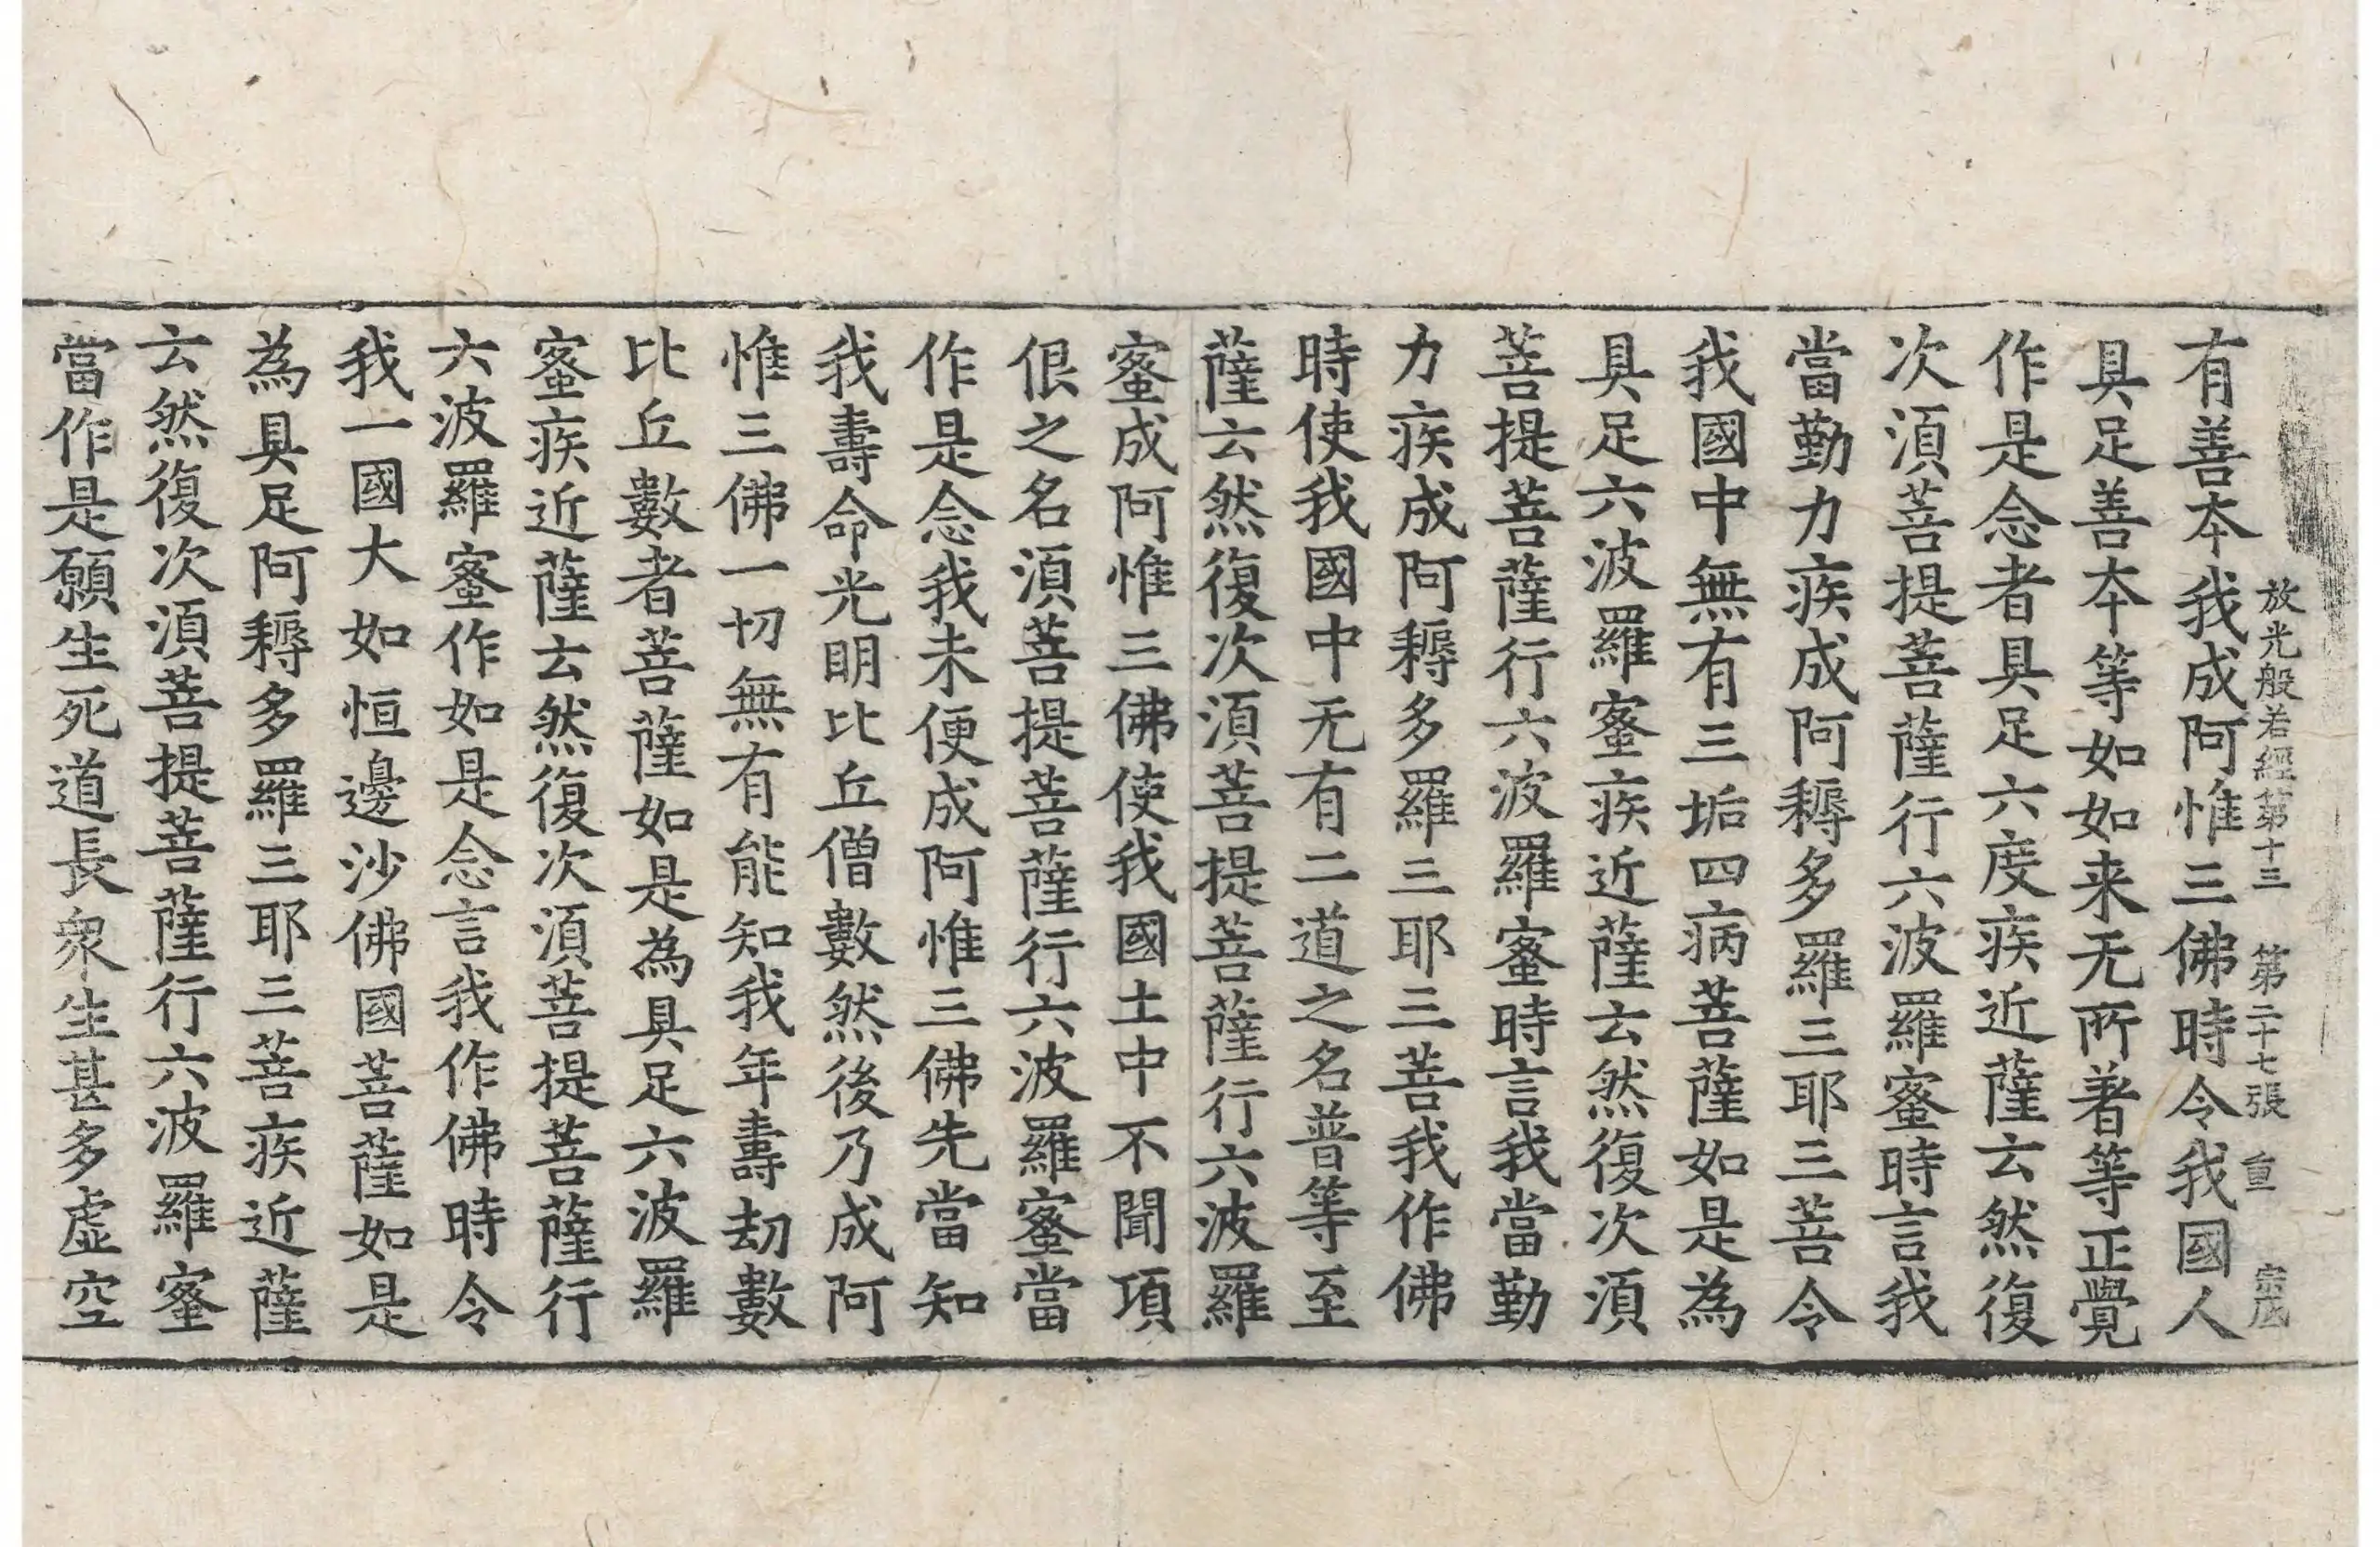 放光般若經第十三 第二十七張 重
有善本我成阿惟三佛時令我國人
具足善本等如如来无所著等正覺
作是念者具足六度疾近薩云然復
次湏菩提菩薩行六波羅蜜時言我
當勤力疾成阿耨多羅三耶三菩令
我國中無有三垢四病菩薩如是為
具足六波羅蜜疾近薩云然復次湏
菩提菩薩行六波羅蜜時言我當勤
力疾成阿耨多羅三耶三菩我作佛
時使我國中无有二道之名普等至
薩云然復次湏菩提菩薩行六波羅
蜜成阿惟三佛使我國土中不聞項
佷之名湏菩提菩薩行六波羅蜜當
作是念我未便成阿惟三佛先當知
我壽命光明比丘僧數然後乃成阿
惟三佛一切無有能知我年壽劫數
比丘數者菩薩如是為具足六波羅
蜜疾近薩云然復次湏菩提菩薩行
六波羅蜜作如是念言我作佛時令
我一國大如恒邊沙佛國菩薩如是
為具足阿耨多羅三耶三菩疾近薩
云然復次湏菩提菩薩行六波羅蜜
當作是願生死道長衆生甚多虛空